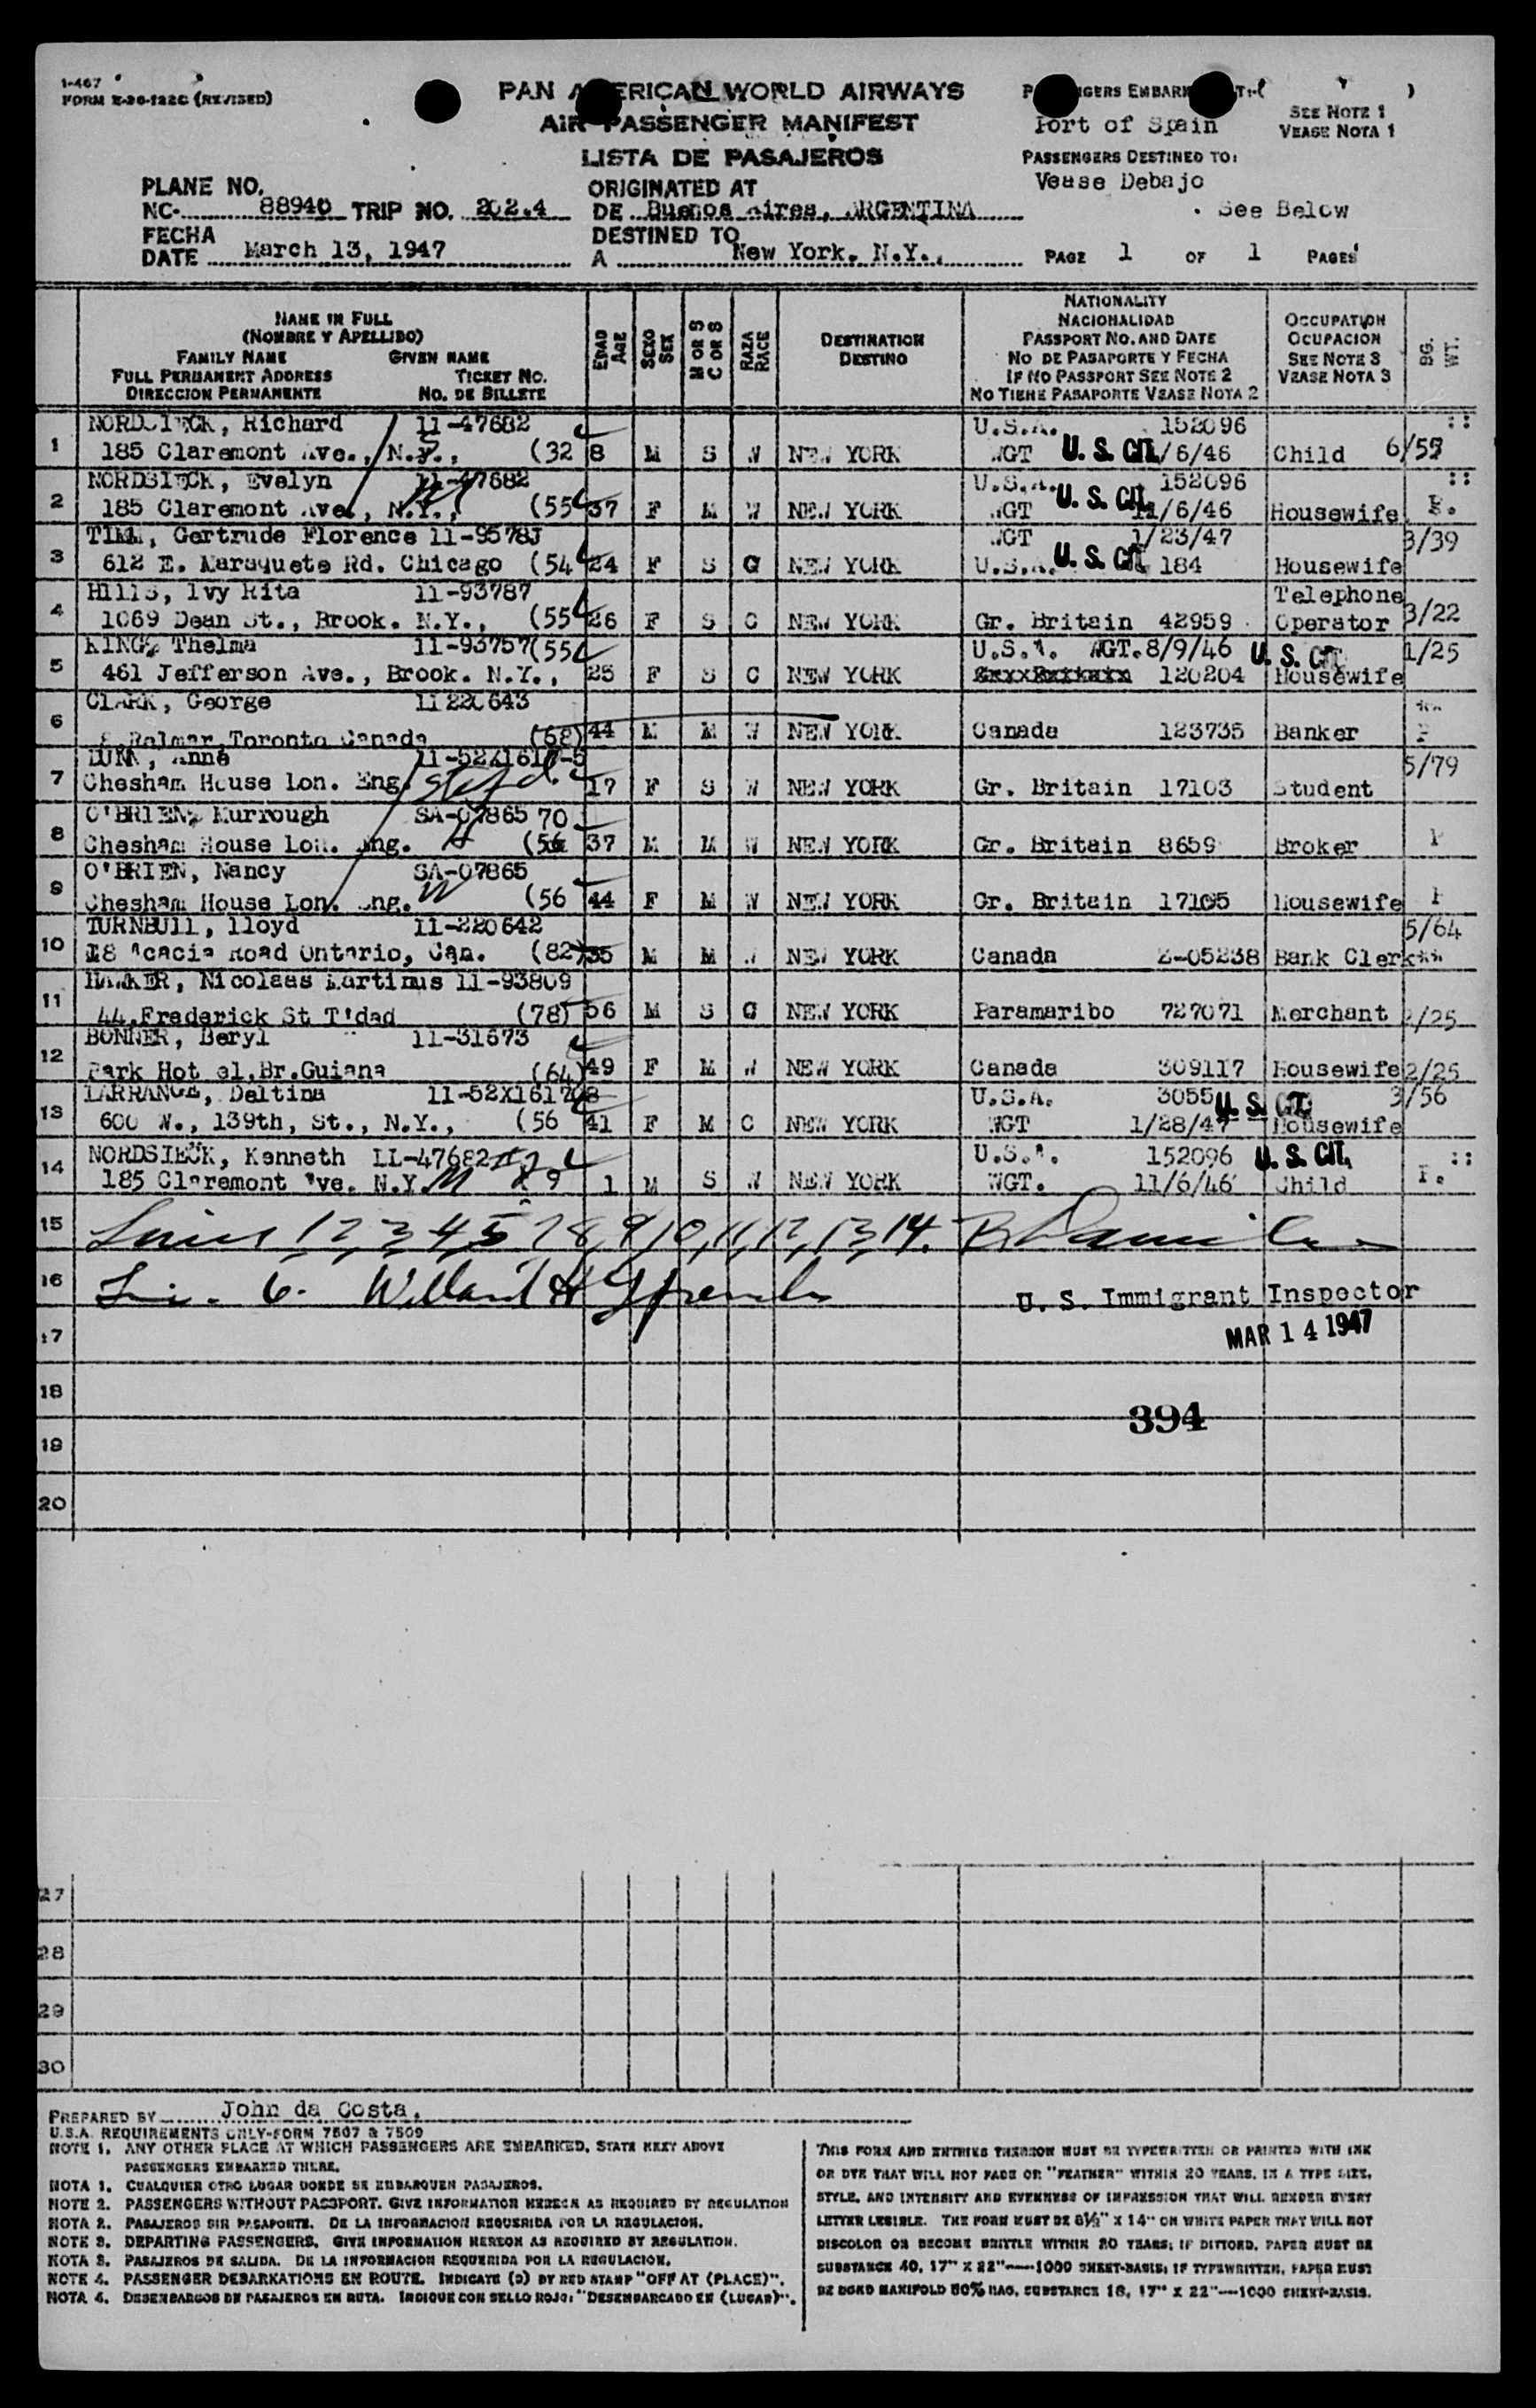 1-467
FORM E-30-122C (REVISED)
PAN AMERICAN WORLD AIRWAYS
AIR PASSENGER MANIFEST
LISTA DE PASAJEROS
PASSENGERS EMBARKED AT:( )
Port of Spain
SEE NOTE 1
VEASE NOTA 1
PASSENGERS DESTINED TO:
Vease Debajo
See Below
PLANE NO.
NC- 88940 TRIP NO. 202.4
ORIGINATED AT
DE Buenos Aires, ARGENTINA
FECHA
DATE March 13, 1947
DESTINED TO
A New York, N.Y.,
PAGE 1 OF 1 PAGES
NAME IN FULL
(NOMBRE Y APELLIDO)
FAMILY NAME GIVEN NAME
FULL PERMANENT ADDRESS TICKET NO.
DIRECCION PERMANENTE NO. DE BILLETE
EDAD AGE
SEXO SEX
M OR S C OR S
RAZA RACE
DESTINATION
DESTINO
NATIONALITY
NACIONALIDAD
PASSPORT NO. AND DATE
NO DE PASAPORTE Y FECHA
IF NO PASSPORT SEE NOTE 2
NO TIENE PASAPORTE VEASE NOTA 2
OCCUPATION
OCUPACION
SEE NOTE 3
VEASE NOTA 3
BG. WT.
NORDSIECK, Richard 11-47682 U.S.A. 152096
1 185 Claremont Ave., N.Y., (32 8 M S W NEW YORK WGT U. S. CIT. /6/46 Child 6/55
NORDSIECK, Evelyn 11-47682 U.S.A. 152096
2 185 Claremont Ave., N.Y., (55 37 F M W NEW YORK WGT U. S. CIT. 11/6/46 Housewife
TIMM, Gertrude Florence 11-9578J WGT 1/23/47 3/39
3 612 E. Maraquete Rd. Chicago (54 24 F S G NEW YORK U.S.A. U. S. CIT. 184 Housewife
HILLS, Ivy Rita 11-93787 Telephone
4 1069 Dean St., Brook. N.Y., (55 26 F S C NEW YORK Gr. Britain 42959 Operator 3/22
KING, Thelma 11-93757 (55 U.S.A. WGT. 8/9/46 U. S. CIT. 1/25
5 461 Jefferson Ave., Brook. N.Y., 25 F S C NEW YORK 120204 Housewife
CLARK, George 11220643
6 8 Balmar, Toronto Canada (68) 44 M M W NEW YORK Canada 123735 Banker
LUNN, Anne 11-52X1617-5 5/79
7 Chesham House Lon. Eng. 17 F S W NEW YORK Gr. Britain 17103 Student
O'BRIEN, Murrough SA-07865 70
8 Chesham House Lon. Eng. (56 37 M M W NEW YORK Gr. Britain 8659 Broker
O'BRIEN, Nancy SA-07865
9 Chesham House Lon. Eng. (56 44 F M W NEW YORK Gr. Britain 17105 Housewife
TURNBULL, Lloyd 11-220642 5/64
10 18 Acacia Road Ontario, Can. (82) 35 M M W NEW YORK Canada Z-05238 Bank Clerk
HAWKER, Nicolaas Martinus 11-93809
11 44, Frederick St T'dad (78) 56 M S G NEW YORK Paramaribo 727071 Merchant 2/25
BONNER, Beryl 11-31673
12 Park Hotel, Br. Guiana (64) 49 F M W NEW YORK Canada 309117 Housewife 2/25
LARRANGE, Daltina 11-52X161708 U.S.A. 3055 U. S. CIT. 3/56
13 600 W., 139th, St., N.Y., (56 41 F M C NEW YORK WGT 1/28/47 Housewife
NORDSIECK, Kenneth LL-47682 U.S.A. 152096 U. S. CIT.
14 185 Claremont Ave. N.Y. 1 M S W NEW YORK WGT. 11/6/46 Child
15 Lines 1, 2, 3, 4, 5, 7, 8, 9, 10, 11, 12, 13, 14.
16 6. Willard
U. S. Immigrant Inspector
17 MAR 14 1947
18
394
19
20
27
28
29
30
PREPARED BY John da Costa.
U.S.A. REQUIREMENTS ONLY-FORM 7507 & 7509
NOTE 1. ANY OTHER PLACE AT WHICH PASSENGERS ARE EMBARKED, STATE NEXT ABOVE
PASSENGERS EMBARKED THERE.
NOTA 1. CUALQUIER OTRO LUGAR DONDE SE EMBARQUEN PASAJEROS.
NOTE 2. PASSENGERS WITHOUT PASSPORT. GIVE INFORMATION HEREON AS REQUIRED BY REGULATION
NOTA 2. PASAJEROS SIN PASAPORTE. DE LA INFORMACION REQUERIDA POR LA REGULACION.
NOTE 3. DEPARTING PASSENGERS. GIVE INFORMATION HEREON AS REQUIRED BY REGULATION.
NOTA 3. PASAJEROS DE SALIDA. DE LA INFORMACION REQUERIDA POR LA REGULACION.
NOTE 4. PASSENGER DEBARKATIONS EN ROUTE. INDICATE (D) BY RED STAMP "OFF AT (PLACE)".
NOTA 4. DESEMBARCOS DE PASAJEROS EN RUTA. INDIQUE CON SELLO ROJO: "DESEMBARCADO EN (LUGAR)".
THIS FORM AND ENTRIES THEREON MUST BE TYPEWRITTEN OR PRINTED WITH INK
OR DYE THAT WILL NOT FADE OR "FEATHER" WITHIN 20 YEARS, IN A TYPE SIZE,
STYLE, AND INTENSITY AND EVENNESS OF IMPRESSION THAT WILL RENDER EVERY
LETTER LEGIBLE. THE FORM MUST BE 8½" X 14" ON WHITE PAPER THAT WILL NOT
DISCOLOR OR BECOME BRITTLE WITHIN 20 YEARS; IF DITTOED, PAPER MUST BE
SUBSTANCE 40, 17" X 22"—1000 SHEET-BASIS; IF TYPEWRITTEN, PAPER MUST
BE BOND MANIFOLD 50% RAG, SUBSTANCE 16, 17" X 22"—1000 SHEET-BASIS.